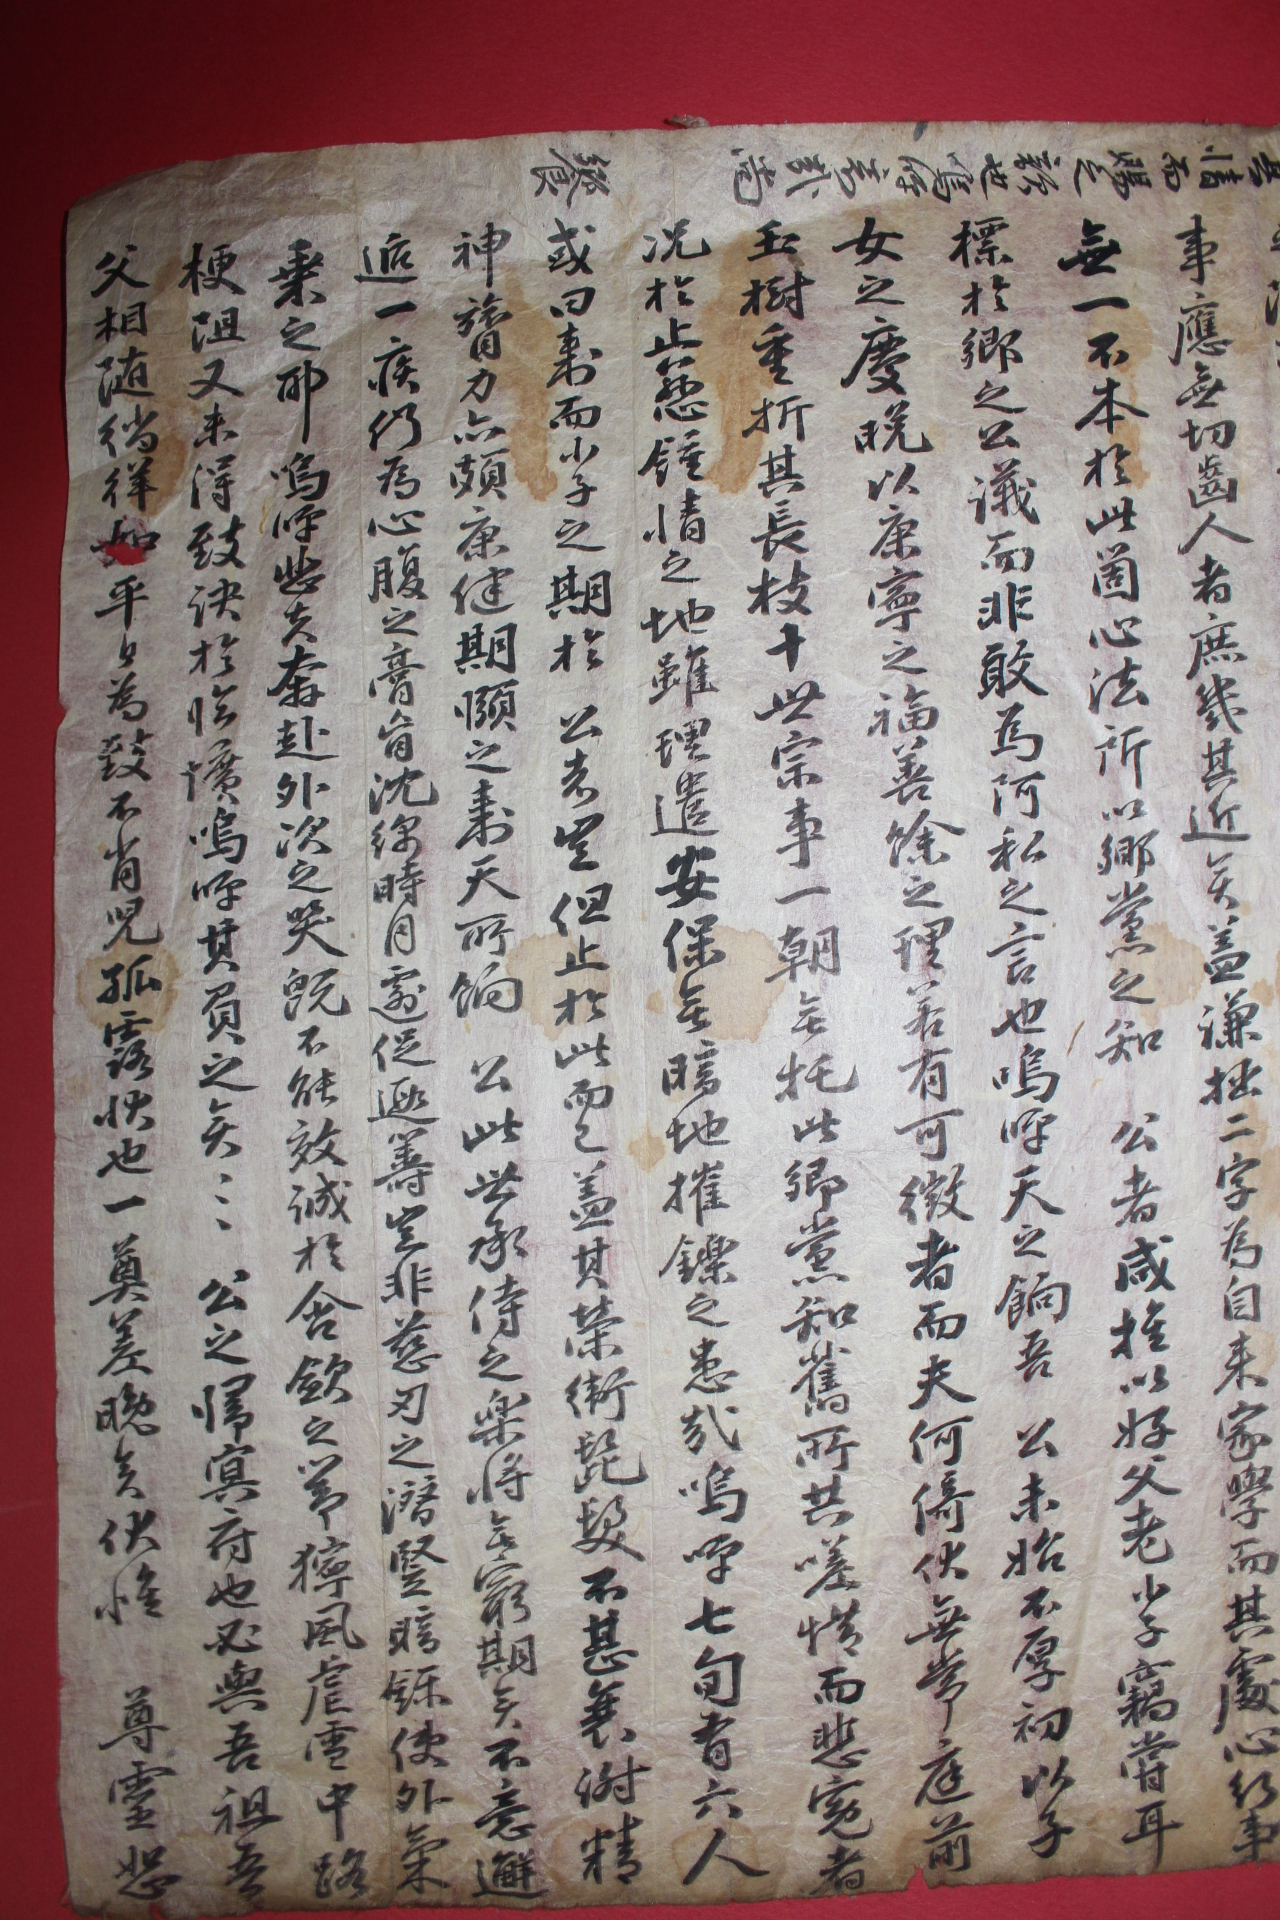 事應無切齒人者庶幾其近矣盖謙拙二字為自来家學而其處心行事
無一不本於此箇心法所以鄉黨之知 公者咸推以好父老小子竊嘗耳
標於鄉之公議而非敢為阿私之言也嗚呼天之餉吾 公未始不厚初以子
女之慶晩以康寧之福善餘之理若有可徵者而夫何倚伏無常庭前
玉樹重折其長枝十世宗事一朝無托此鄉黨知舊所共嗟惜而悲寃者
况於止慈鍾情之地雖理遣安保無暗地摧鑠之患哉嗚呼七旬有六人
或曰壽而小子之期於 公者豈但止於此而已盖其榮衛髭髮不甚衰謝精
神膂力亦頗康健期頤之壽天所餉 公此世承侍之樂將無窮期矣不意邂
逅一疾仍為心腹之膏肓沈綿時月遽促遐筭豈非慈刃之潛竪暗鑠使外氣
乗之耶 嗚呼 奔赴外次之哭旣不能效誠於含歛之節獰風虐雪中路
梗阻又未得致訣於臨壙嗚呼其負之矣〻〻 公之歸冥府也必與吾祖吾
父相随徜徉如平日為致不肖兒孤露状也一奠差晩矣伏惟 尊靈恕
情而
賜之
歆也
嗚呼
哀哉
尚
饗